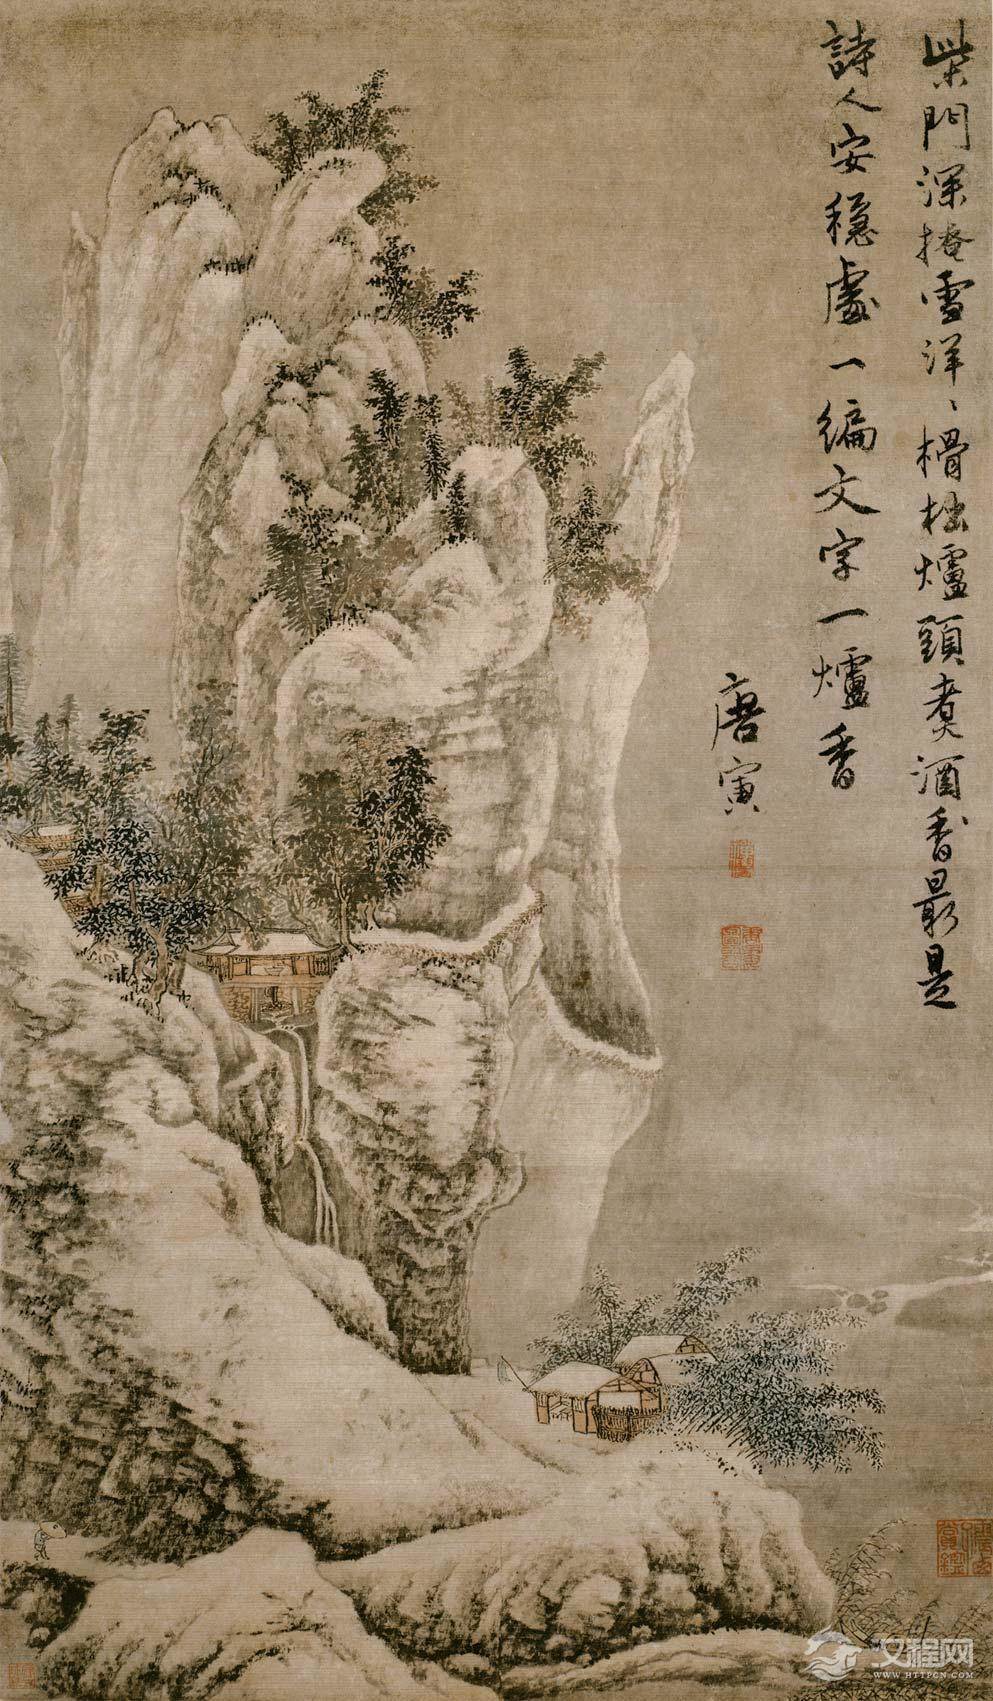 柴門深掩雪洋〻榾柮爐頭煑酒香最是
詩人安穩處一編文字一爐香
唐寅
汉程网
WWW.HTTPCN.COM